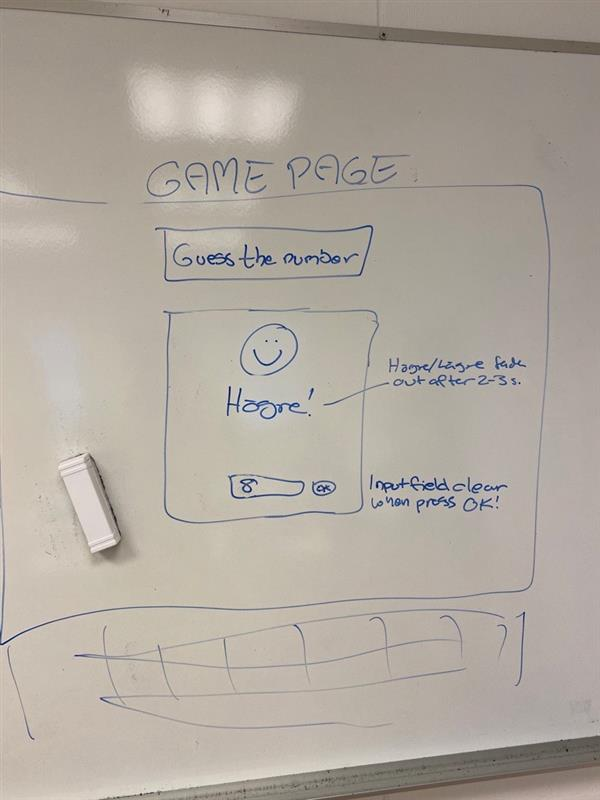 GAME PAGE
Guess the number
Högre!
Högre/Lägre fade
out after 2-3 s.
8
OK
Input field clear
when press OK!